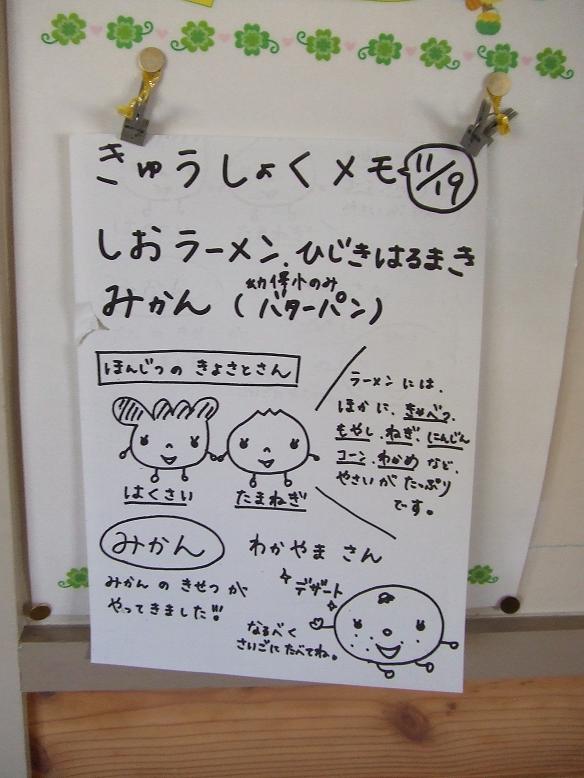 きゅうしょくメモ 11/19
しおラーメン、ひじきはるまき
幼保小のみ
みかん（バターパン）
ほんじつの きよさとさん
はくさい たまねぎ
ラーメンには、
ほかに、きゃべつ、
もやし、ねぎ、にんじん
コーン、わかめ など、
やさいが たっぷり
です。
みかん わかやま さん
みかんの きせつが
やってきました!!!
デザート
なるべく
さいごに たべてね。